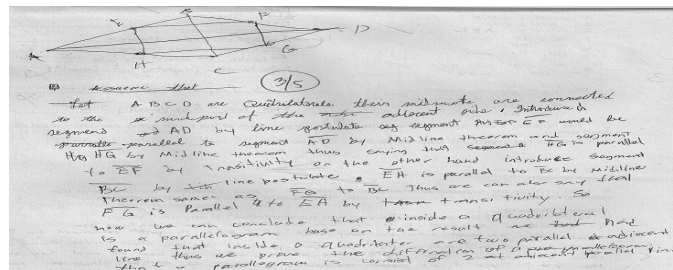 E B F D
A H C G
Assume that 3/5
Let A B C D are Quadrilaterals their midpoints are connected
to the midpoint of the adjacent side. Introduce
segment AD by line postulate seg segment EF would be
parallel to segment AD by Midline theorem and segment
HG by Midline theorem thus saying that segment HG is parallel
to EF by transitivity on the other hand introduce segment
BC by line postulate EH is parallel to BC by midline
Theorem same as FG to BC Thus we can also say that
FG is Parallel to EH by transitivity. So
now we can conclude that inside a quadrilateral
is a parallelogram base on the result we had
found that inside a Quadrilateral are two parallel adjacent
line thus we prove the definition of parallelogram
that a parallelogram is consist of 2 adjacent parallel line